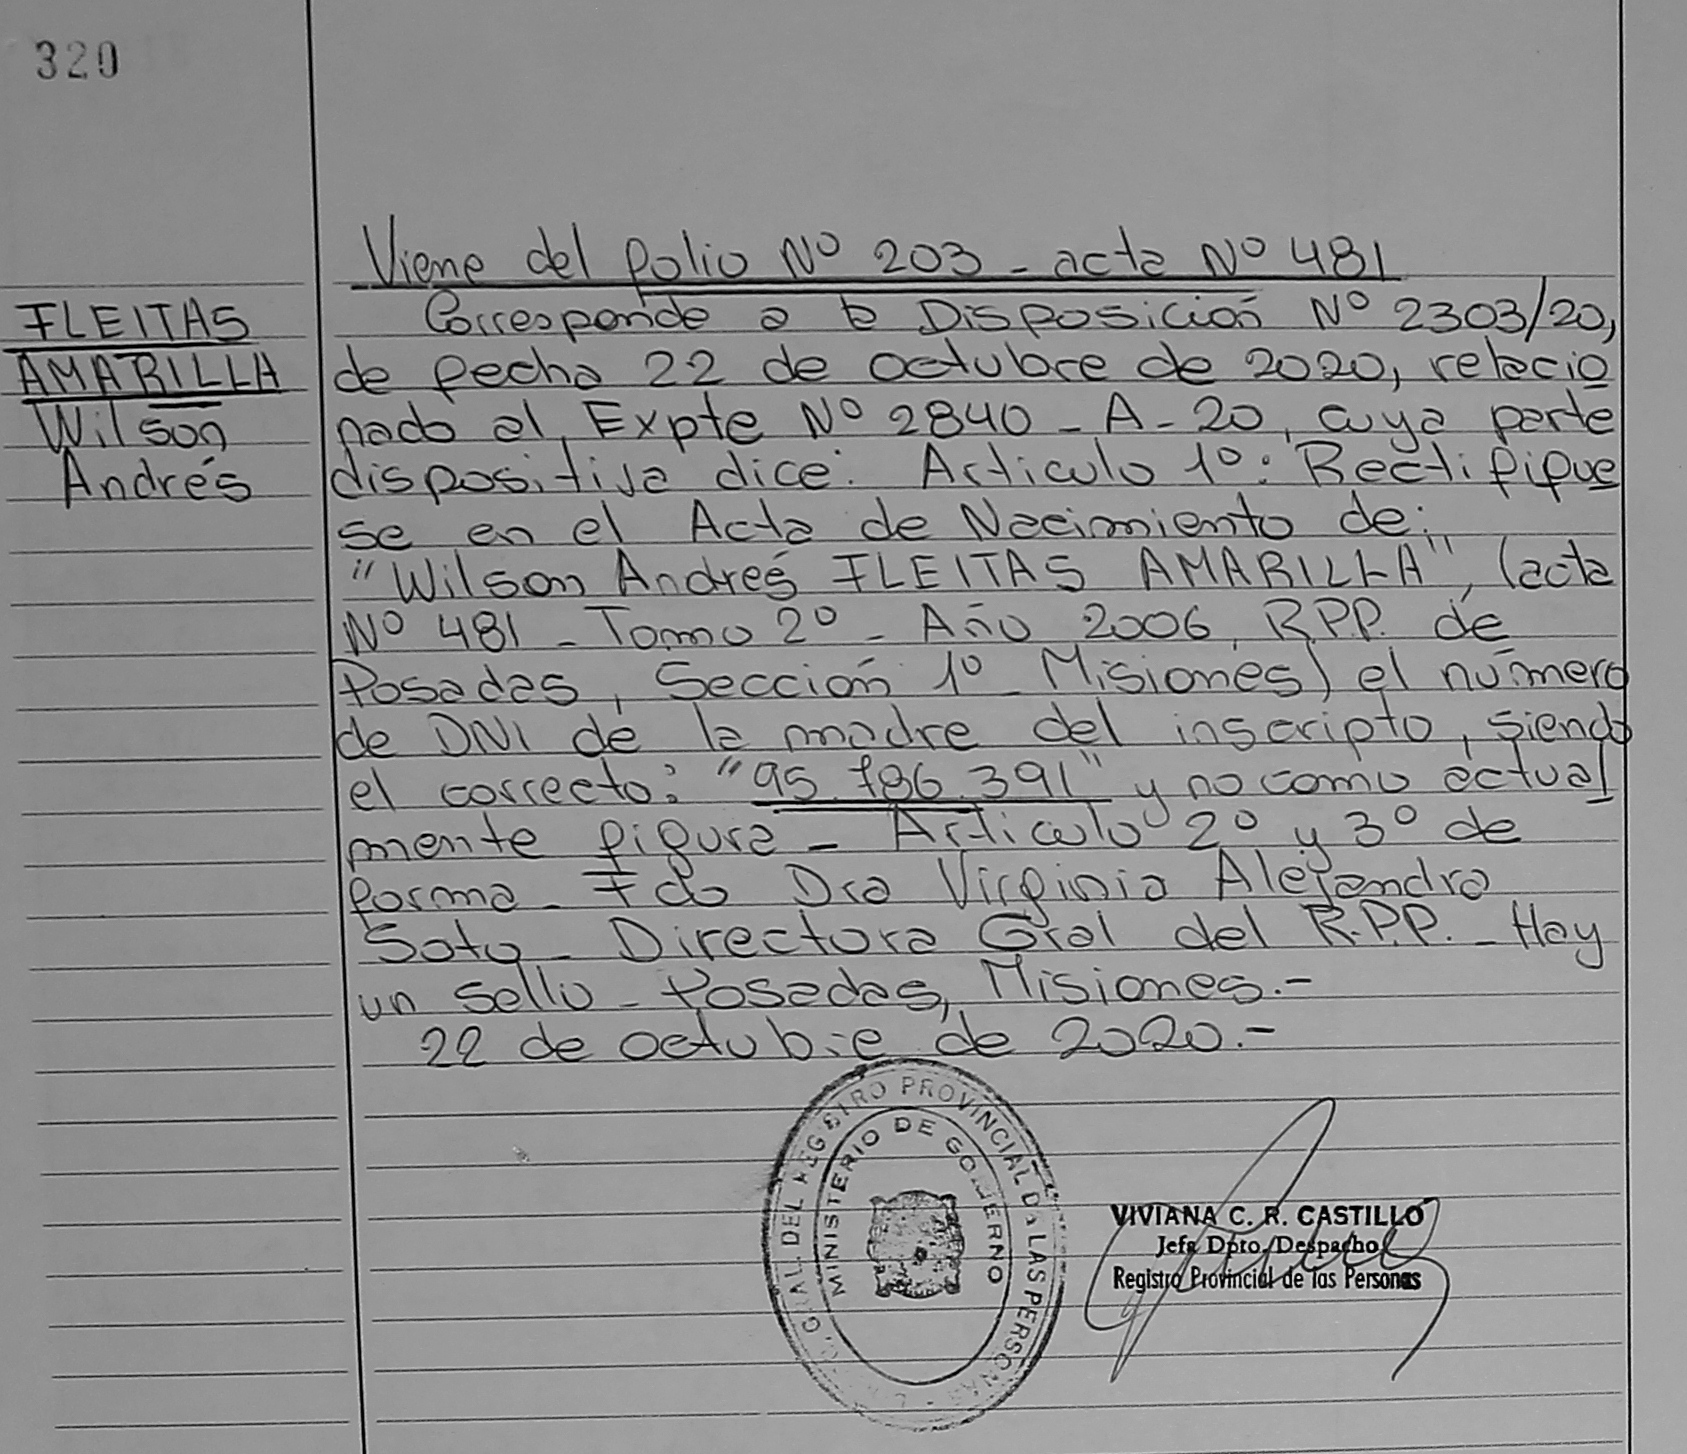 320
Viene del folio Nº 203 - acta Nº 481
FLEITAS
AMARILLA
Wilson
Andrés
Corresponde a la Disposición Nº 2303/20,
de fecha 22 de octubre de 2020, relacio
nado al Expte Nº 2840 - A - 20, cuya parte
dispositiva dice: Artículo 1º: Rectifique
se en el Acta de Nacimiento de:
"Wilson Andrés FLEITAS AMARILLA", (acta
Nº 481 - Tomo 2º - Año 2006, R.P.P. de
Posadas, Sección 1º Misiones) el número
de DNI de la madre del inscripto, siendo
el correcto: "95.786.391" y no como actual
mente figura - Artículo 2º y 3º de
forma - Fdo Dra Virginia Alejandra
Soto - Directora Gral del R.P.P. - Hay
un sello - Posadas, Misiones.-
22 de octubre de 2020.-
GRAL. DEL REGISTRO PROVINCIAL DE LAS PERSONAS
MINISTERIO DE GOBIERNO
VIVIANA C. R. CASTILLO
Jefa Dpto. Despacho
Registro Provincial de las Personas